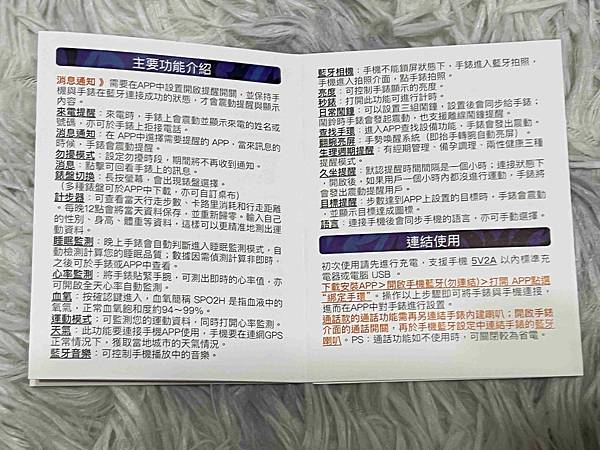 主要功能介紹
消息通知》需要在APP中設置開啟提醒開關，並保持手
機與手錶在藍牙連接成功的狀態，才會震動提醒與顯示
內容。
來電提醒：來電時，手錶上會震動並顯示來電的姓名或
號碼，亦可於手錶上拒接電話。
消息通知：在 APP中選擇需要提醒的 APP，當來訊息的
時候，手錶會震動提醒。
勿擾模式：設定勿擾時段，期間將不再收到通知。
消息：點擊可回看手錶上的訊息。
錶盤切換：長按螢幕，會出現錶盤選擇。
(多種錶盤可於APP中下載，亦可自訂桌布)
計步器：可查看當天行走步數、卡路里消耗和行走距離
。每晚12點會將當天資料保存，並重新歸零。輸入自己
的性別、身高、體重等資訊，這樣可以更精准地測出運
動資料。
睡眠監測：晚上手錶會自動判斷進入睡眠監測模式，自
動檢測計算您的睡眠品質；數據因需偵測計算非即時，
之後可於手錶或APP中查看。
心率監測：將手錶貼緊手腕，可測出即時的心率值，亦
可開啟全天心率自動測試。
血氧：按按確認鍵進入，血氧簡稱 SPO2H 是指血液中的
氧氣，正常血氧飽和度約94~99%。
運動模式：可監測您的運動資料，同時打開心率監測。
天氣：此功能要連接手機APP使用，手機要在連網GPS
正常情況下，獲取當地城市的天氣情況。
藍牙音樂：可控制手機播放中的音樂。
藍牙相機：手機不能鎖屏狀態下，手錶進入藍牙拍照，
手機進入拍照介面，點手錶拍照。
亮度：可控制手錶顯示的亮度。
秒錶：打開此功能可進行計時。
日常鬧鐘：可以設置三組鬧鐘，設置後會同步給手錶；
鬧鈴時手錶會發起震動，也支援離線鬧鐘提醒。
查找手環：進入APP查找設備功能，手錶會發出震動。
翻腕亮屏：手勢喚醒系統（即抬手轉腕自動亮屏）。
生理週期提醒：有經期管理、備孕調理、兩性健康三種
提醒模式。
久坐提醒：默認提醒時間間隔是一個小時；連接狀態下
，開啟後，如果用戶一個小時內都沒進行運動，手錶將
會發出震動提醒用戶。
目標提醒：步數達到APP上設置的目標時，手錶會震動
，並顯示目標達成圖標。
語言：連接手機後會同步手機的語言，亦可手動選擇。
連結使用
初次使用請先進行充電，支援手機 5V2A 以內標準充
電器或電腦 USB 。
下載安裝APP>開啟手機藍牙(勿連結)>打開 APP點選
“綁定手環”。操作以上步驟即可將手錶與手機連接，
進而在APP中對手錶進行設置。
通話款的通話功能需再另連結手錶內建喇叭；開啟手錶
介面的通話開關，再於手機藍牙設定中連結手錶的藍牙
喇叭。PS：通話功能如不使用時，可關閉較為省電。